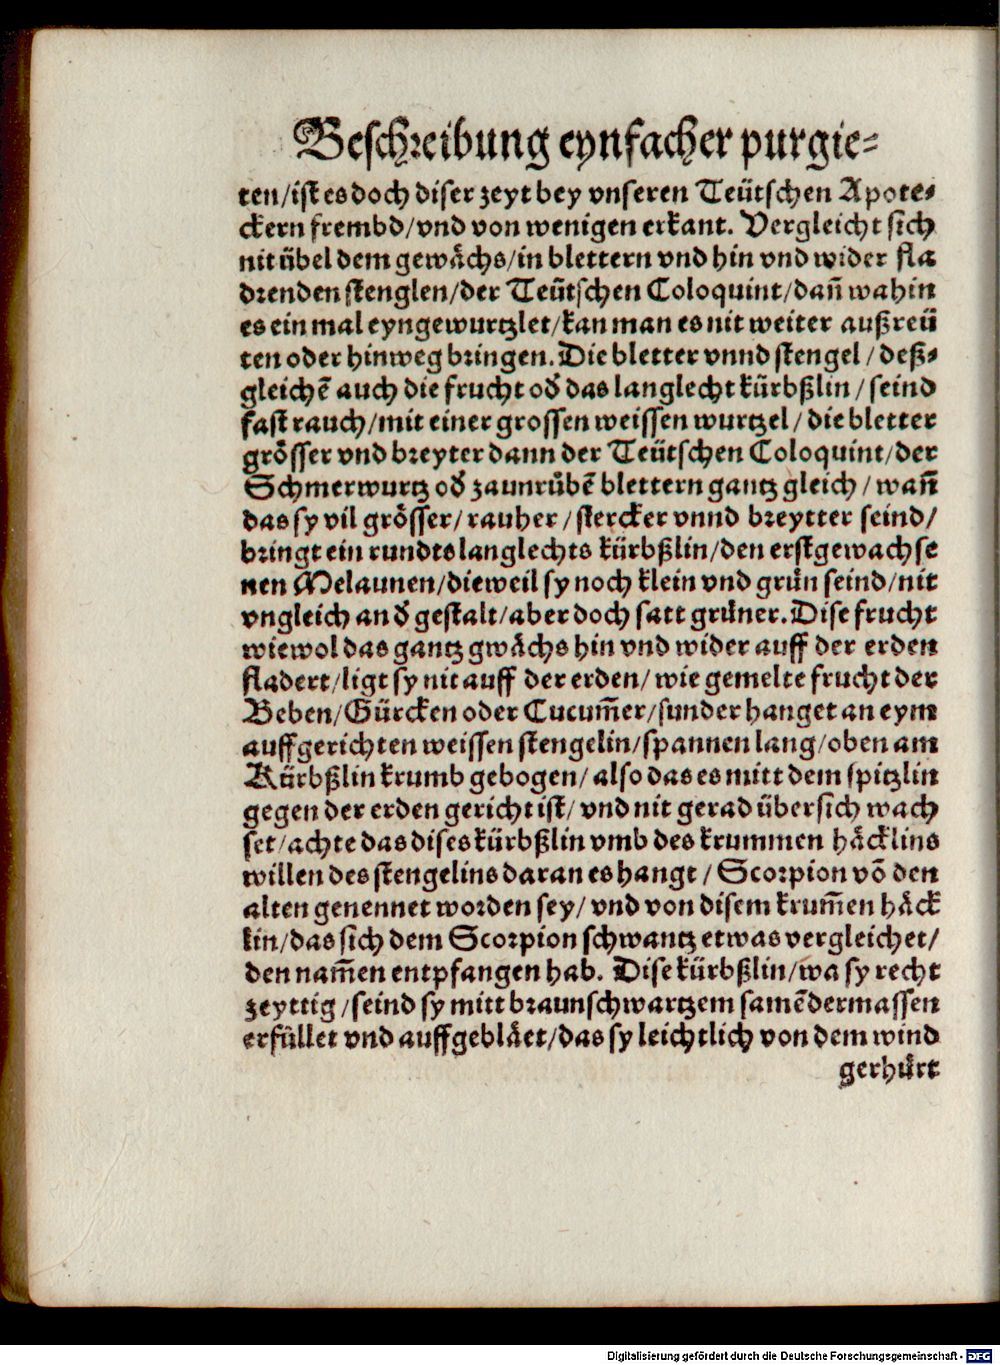 Beschreibung eynfacher purgie⸗
ten/ist es doch diser zeyt bey vnseren Teütschen Apote⸗
ckern frembd/vnd von wenigen erkant. Vergleicht sich
nit übel dem gewächs/in blettern vnd hin vnd wider fla
drenden stenglen/der Teütschen Coloquint/dañ wahin
es ein mal eyngewurtzlet/kan man es nit weiter außreü
ten oder hinweg bringen. Die bletter vnnd stengel/deß⸗
gleichẽ auch die frucht oď das langlecht kürbßlin/seind
fast rauch/mit einer grossen weissen wurtzel/die bletter
grösser vnd breyter dann der Teütschen Coloquint/der
Schmerwurtz oď zaunrübẽ blettern gantz gleich/wañ
das sy vil grösser/rauher/stercker vnnd breytter seind/
bringt ein rundts langlechts kürbßlin/den erst gewachse
nen Melaunen/dieweil sy noch klein vnd grün seind/nit
vngleich an ď gestalt/aber doch satt grüner. Dise frucht
wiewol das gantz gwächs hin vnd wider auff der erden
fladert/ligt sy nit auff der erden/wie gemelte frucht der
Beben/Gürcken oder Cucum̃er/sunder hanget an eym
auffgerichten weissen stengelin/spannen lang/oben am
Kürbßlin krumb gebogen/also das es mitt dem spitzlin
gegen der erden gericht ist/vnd nit gerad übersich wach
set/achte das dises kürbßlin vmb des krummen häcklins
willen des stengelins daran es hangt/Scorpion võ den
alten genennet worden sey/vnd von disem krum̃en häck
lin/das sich dem Scorpion schwantz etwas vergleichet/
den nam̃en entpfangen hab. Dise kürbßlin/wa sy recht
zeyttig/seind sy mitt braunschwartzem samẽ dermassen
erfüllet vnd auffgebläet/das sy leichtlich von dem wind
gerhürt
Digitalisierung gefördert durch die Deutsche Forschungsgemeinschaft - DFG